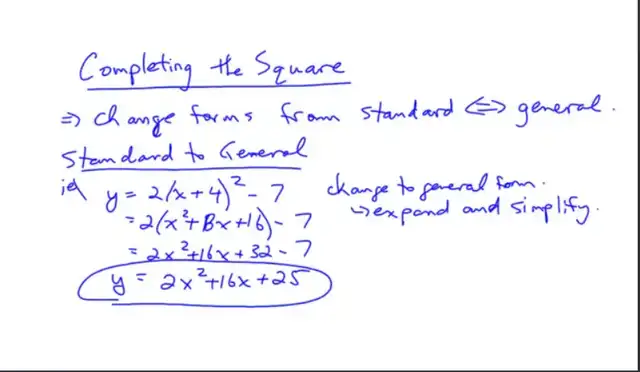 Completing the Square
⇒ change forms from standard ⇔ general.
Standard to General
ie) y = 2(x+4)² - 7 change to general form.
= 2(x²+8x+16) - 7 ↳ expand and simplify.
= 2x²+16x+32-7
y = 2x²+16x+25